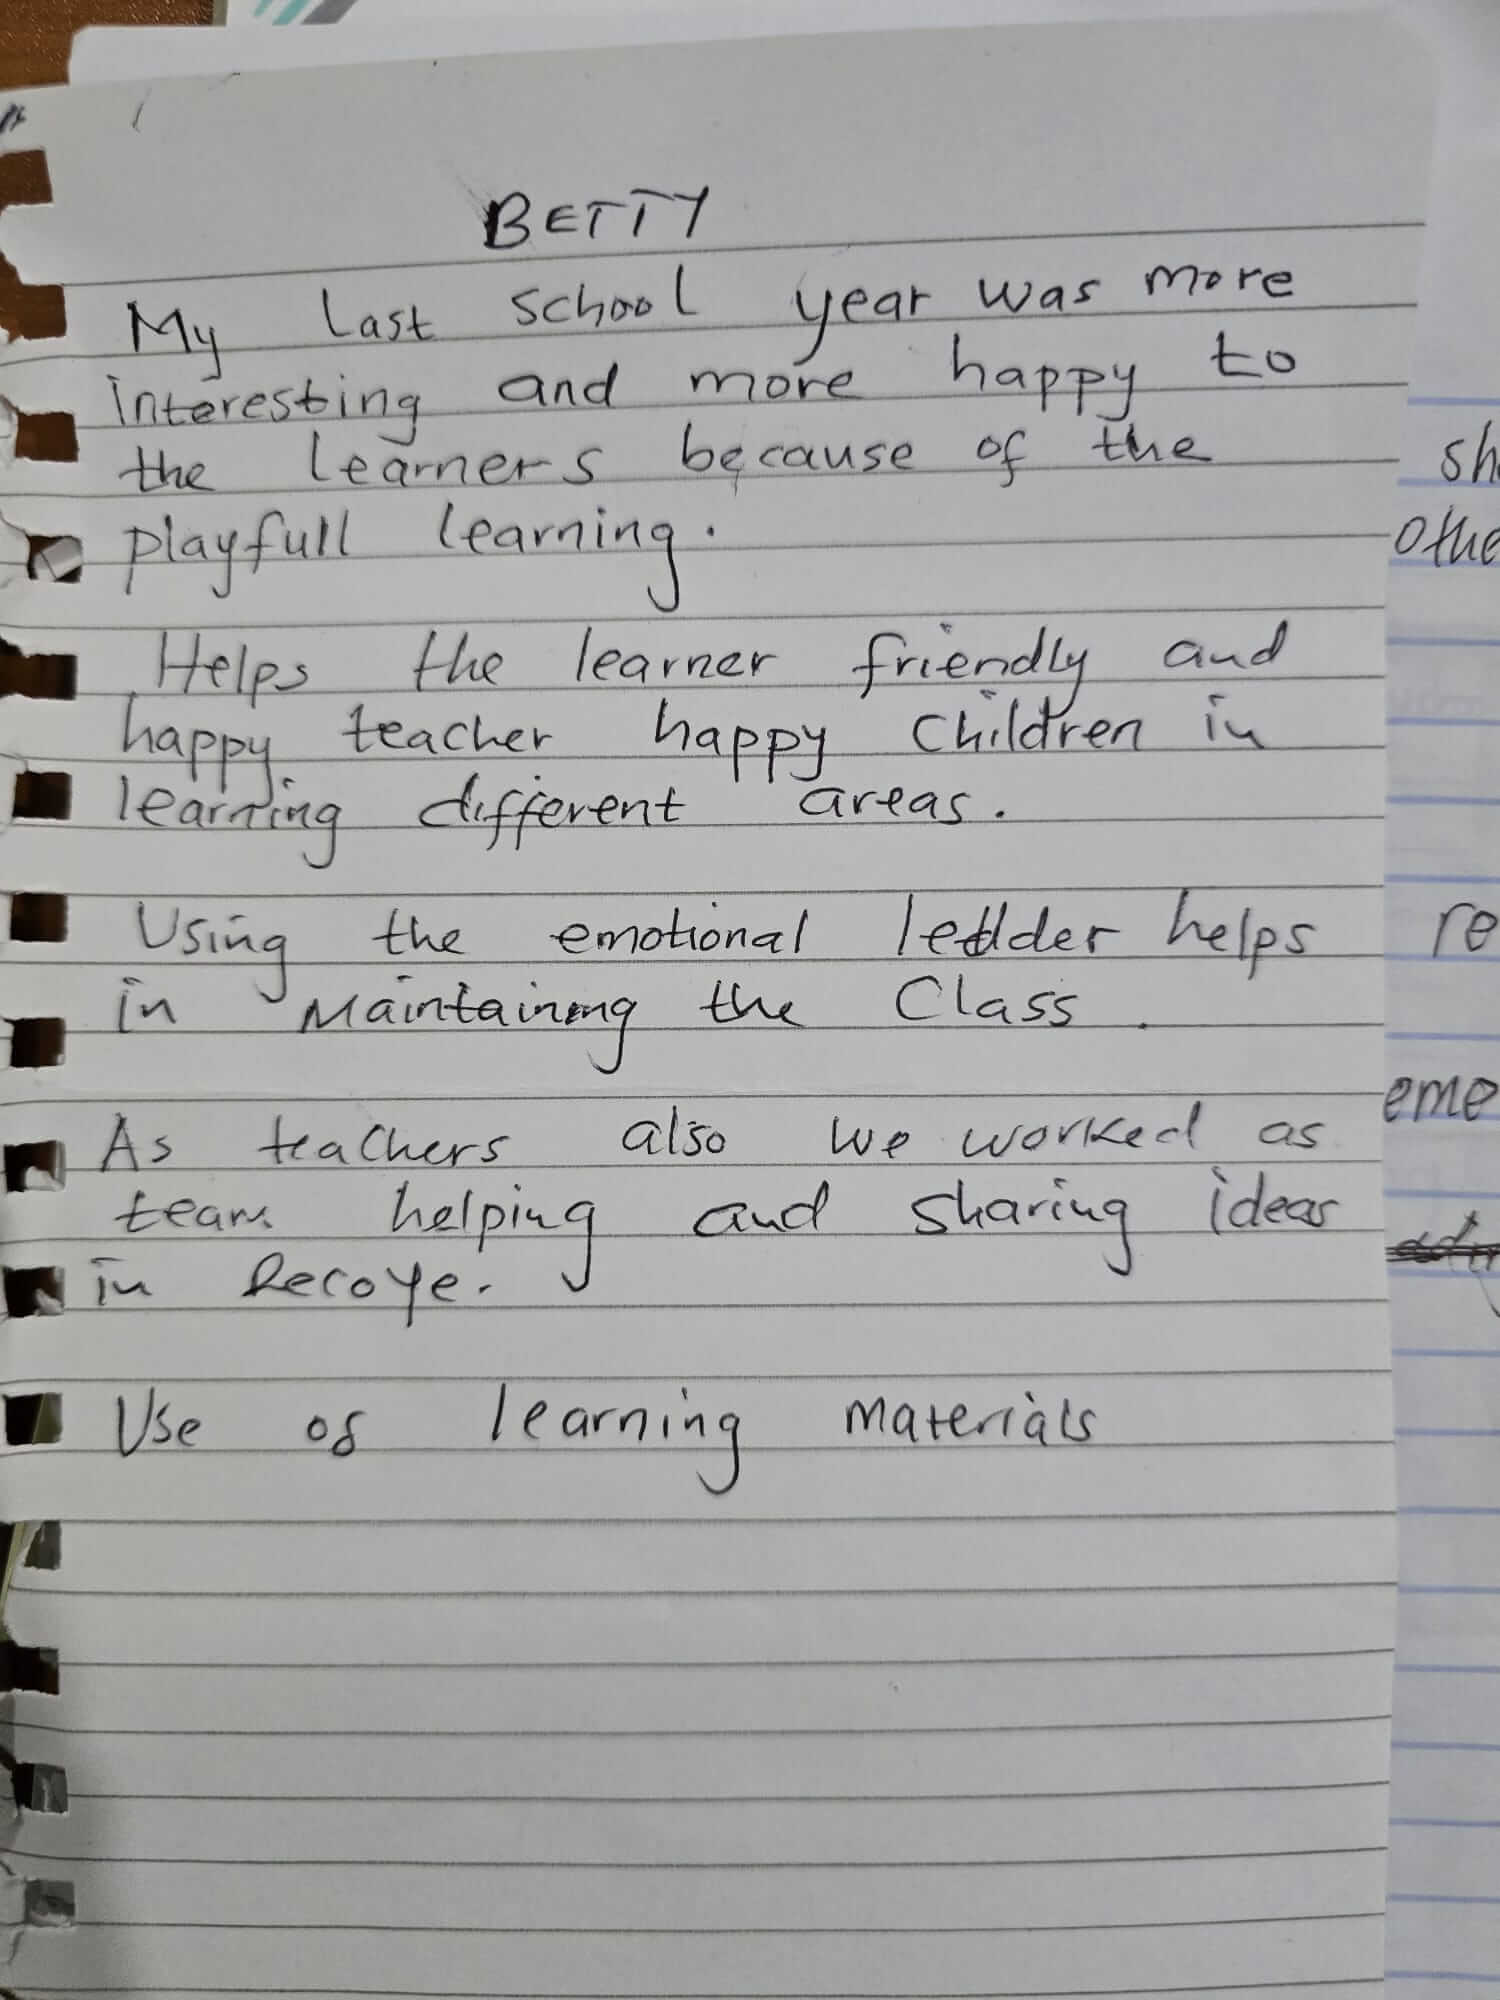 BETTY
My last school year was more
interesting and more happy to
the learners because of the
playfull learning.
Helps the learner friendly and
happy teacher happy children in
learning different areas.
Using the emotional ledder helps
in maintaining the class.
As teachers also we worked as
team helping and sharing ideas
in
Use of learning materials
sh
othe
re
eme